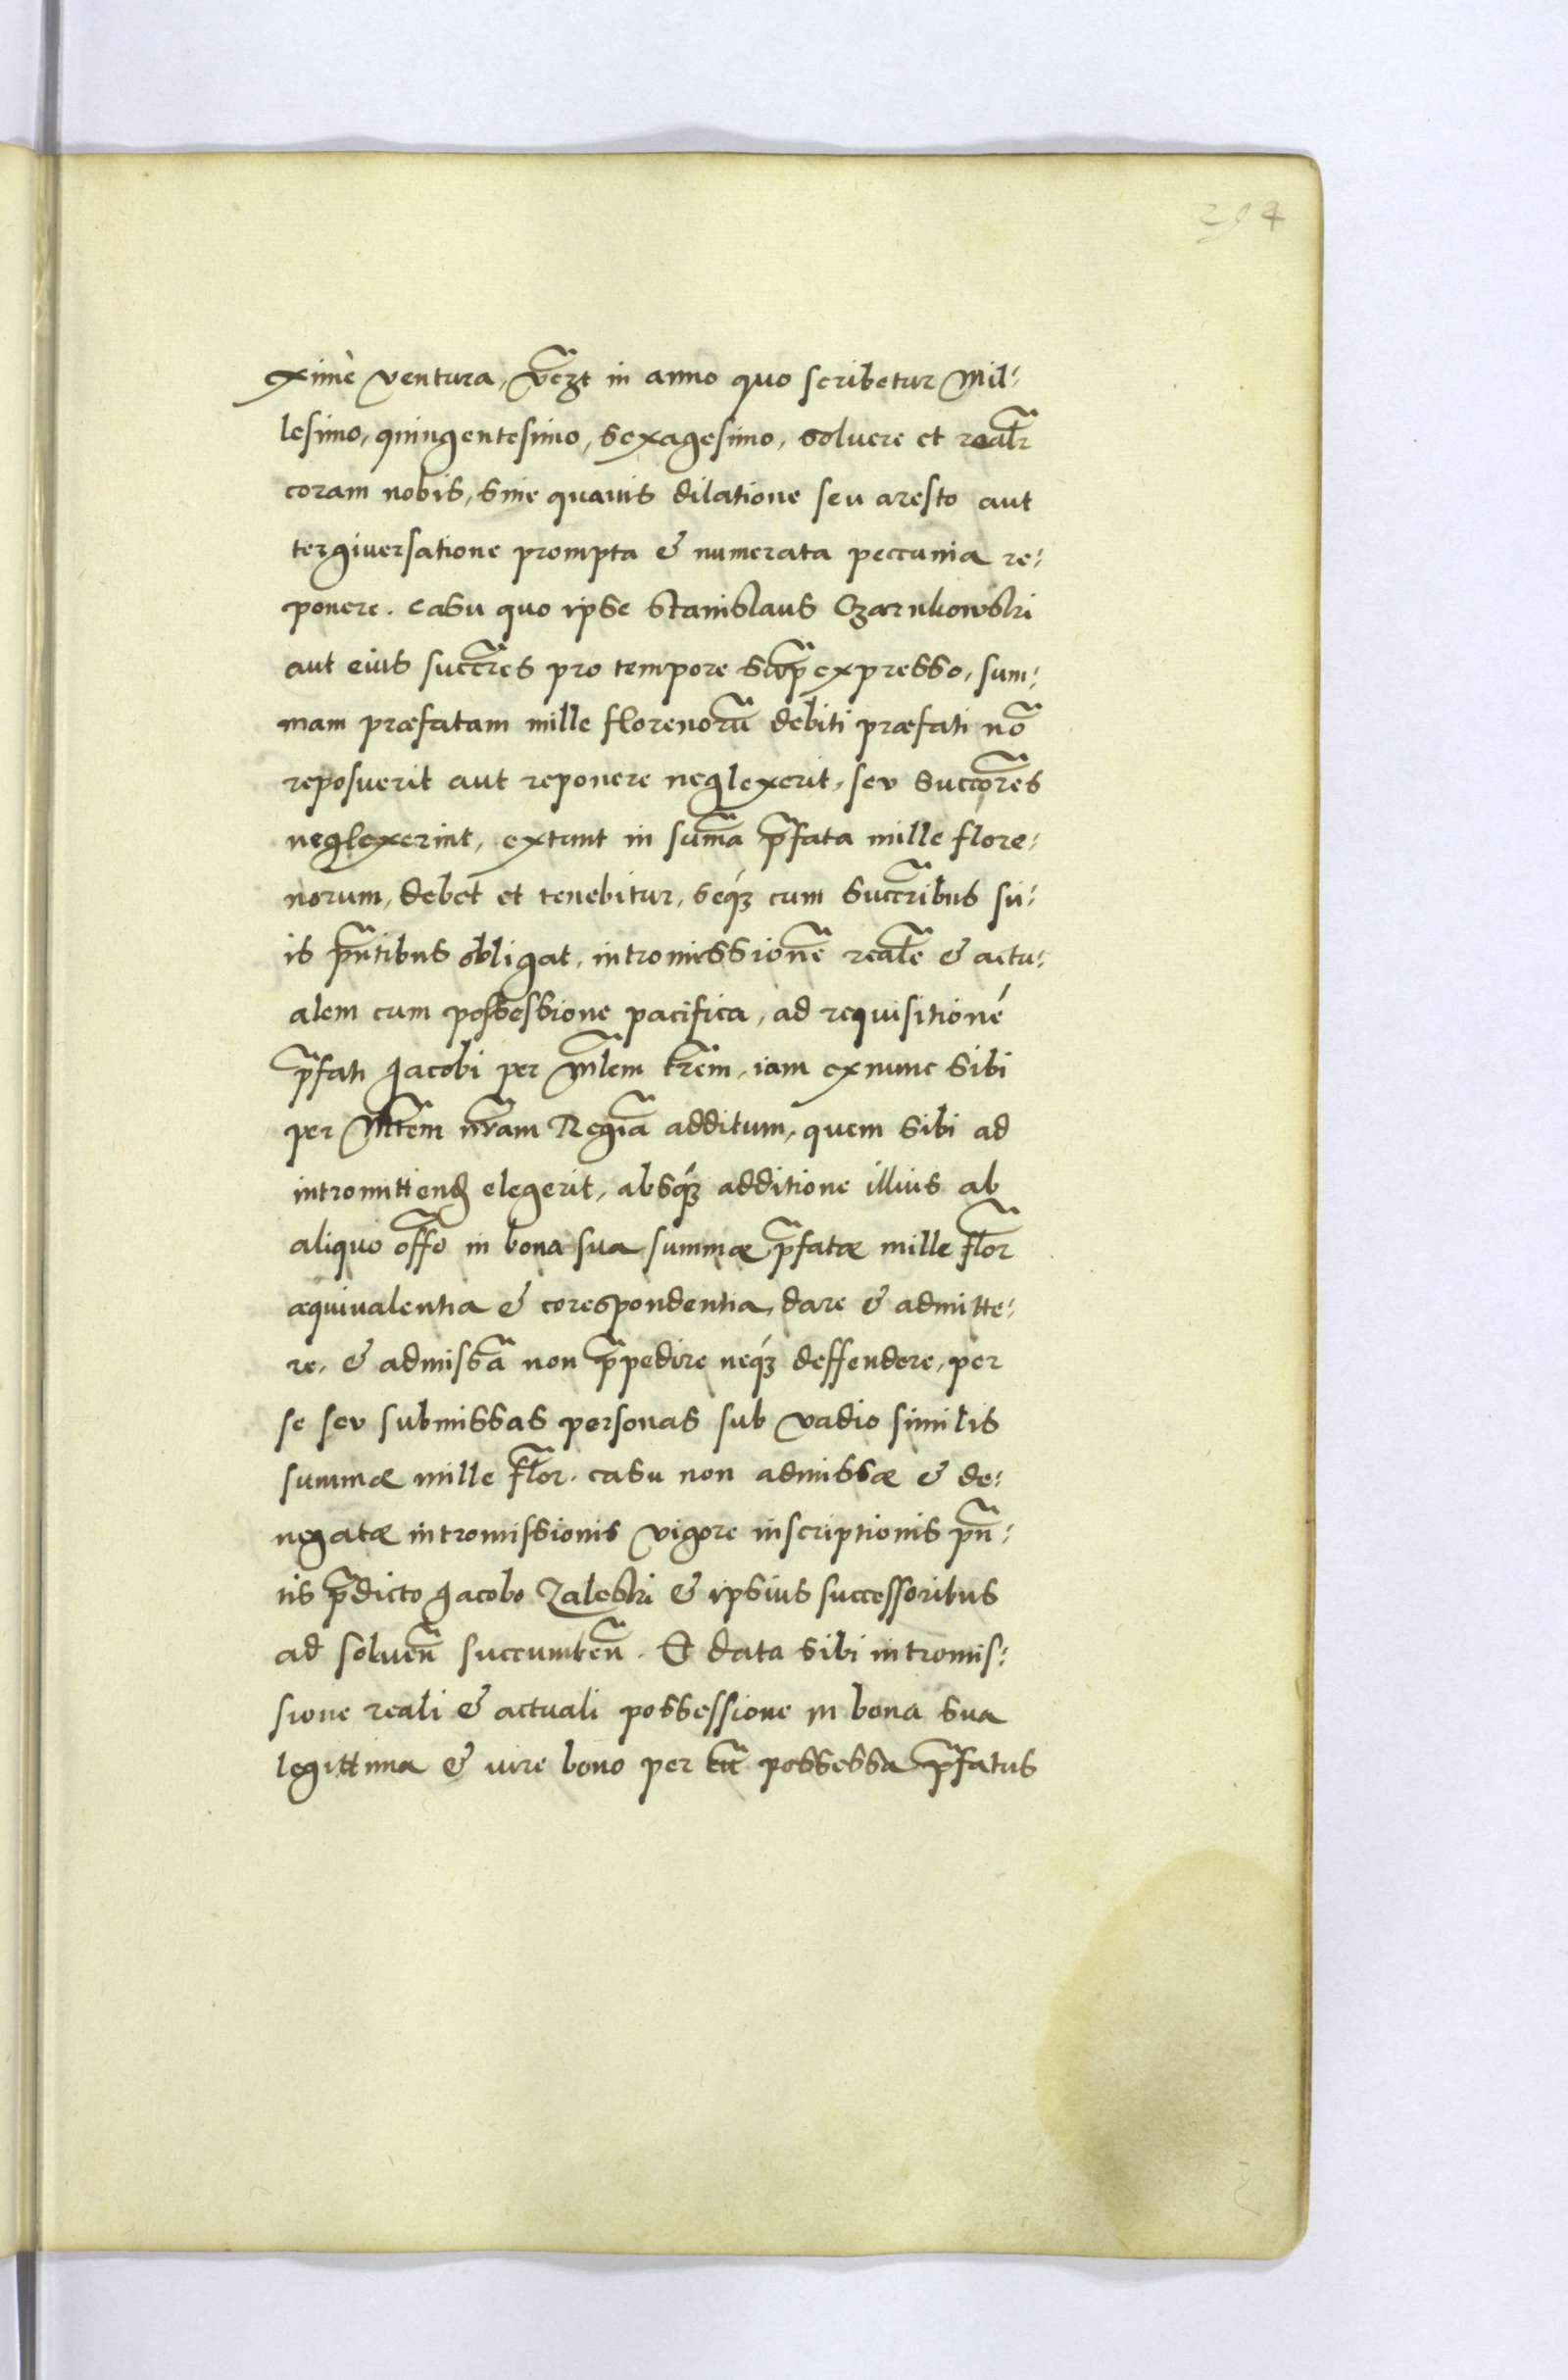 294
ximè ventura, vĩzt in anno quo scribetur Mil:
lesimo, quingentesimo, sexagesimo, soluere et realr̃
coram nobis, sine quauis dilatione seu aresto aut
tergiuersatione prompta & numerata peccunia re:
ponere. Casu quo ipse Stanislaus Czarnkowski
aut eius succr̃es pro tempore sup̃expresso, sum:
mam præfatam mille florenorũ debiti præfati nõ
reposuerit aut reponere neglexerit, seu Succor̃es
neglexerint, extunc in sum̃a p̃fata mille flore:
norum, debet et tenebitur, seq́ʒ cum Succr̃ibus su:
is pñtibus obligat, intromissionẽ realẽ & actu:
alem cum possessione pacifica, ad requisitioné
p̃fati Jacobi per Ml̃em tr̃em, iam exnunc sibi
per Mt̃em nr̃am Regiã additum, quem sibi ad
intromittend elegerit, absq́ʒ additione illius ab
aliquo off̃o in bona sua summæ p̃fatæ mille flõr
æquiualentia & corespondentia, dare & admitte:
re, & admissã non p̃pedire neq́ʒ deffendere, per
se seu submissas personas sub vadio similis
summæ mille flõr. casu non admissæ & de:
negatæ intromissionis vigore inscriptionis pñ:
tis p̃dicto Jacobo Zaleski & ipsius successoribus
ad soluen̄ succumben̄. Et data sibi intromis:
sione reali & actuali possessione in bona sua
legittima & iure bono per eũ possessa p̃fatus